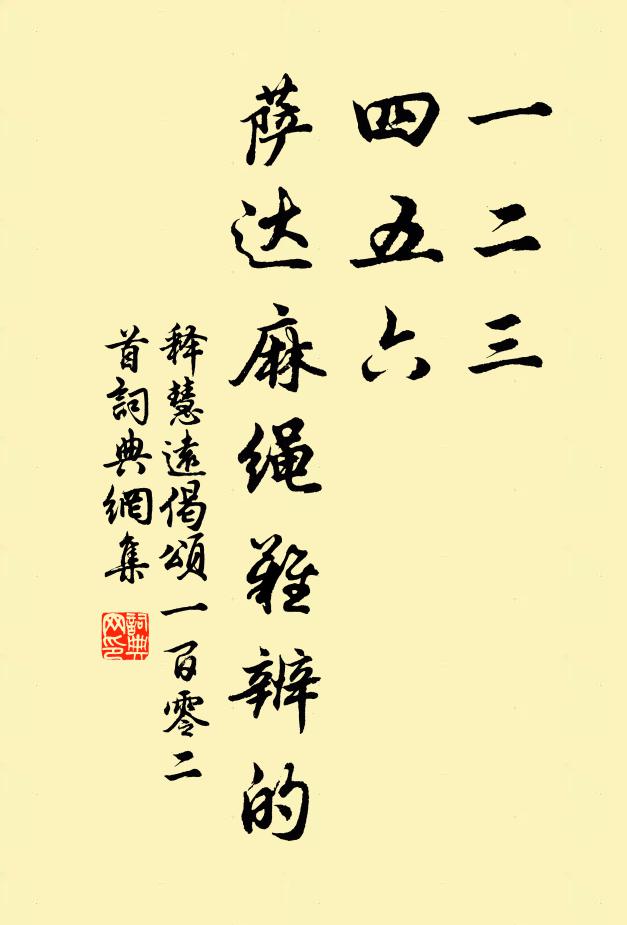 一二三
四五六
萨达麻绳难辨的
释慧遠偈頌一百零二
首詞典網集
詞典
网印